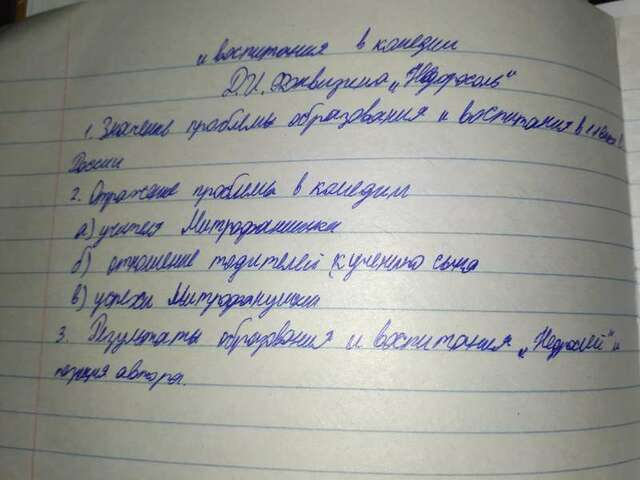 и воспитания в комедии
Д.И. Фонвизина „Недоросль"
1. Значение проблемы образования и воспитания в
России
2. Отражение проблемы в комедии
а) учителя Митрофанушки
б) отношение родителей к учению сына
в) успехи Митрофанушки
3. Результаты образования и воспитания „Недорослей" и
позиция автора.